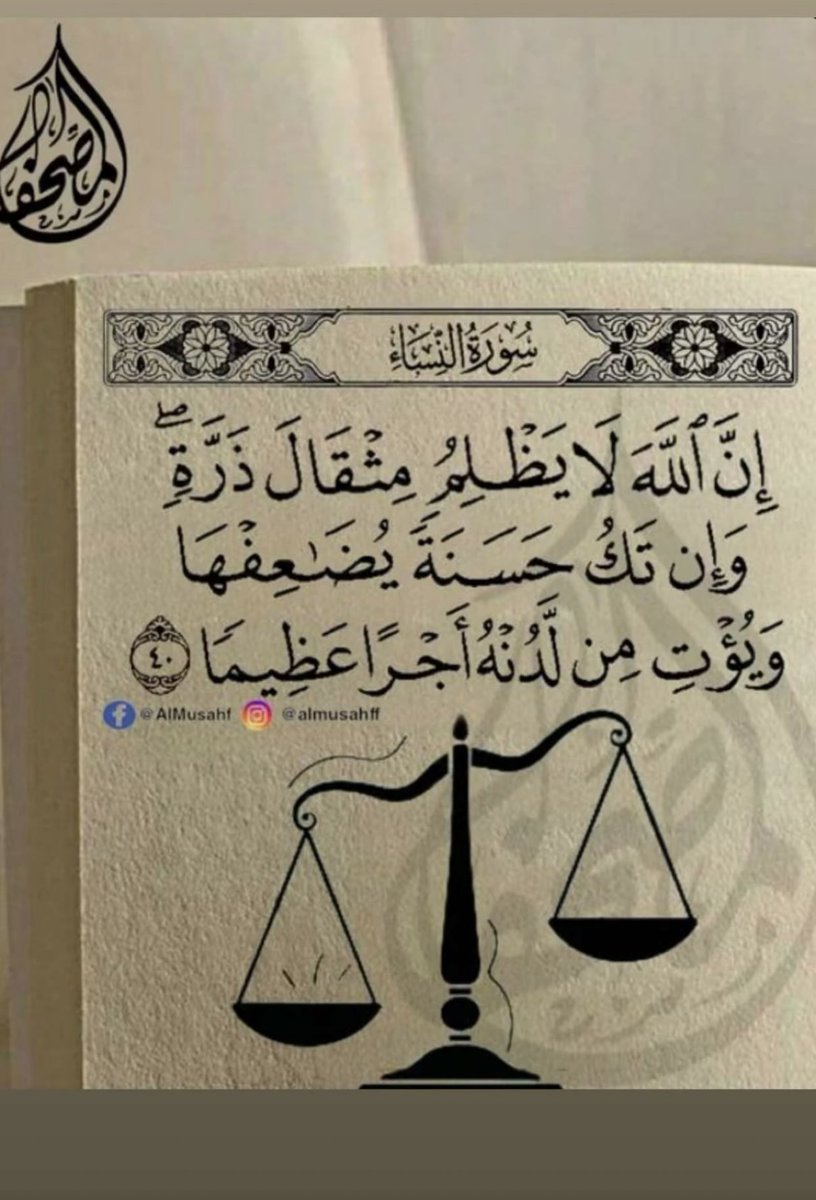 المصحف
سُورَةُ النِّسَاءِ
إِنَّ ٱللَّهَ لَا يَظْلِمُ مِثْقَالَ ذَرَّةٍۖ
وَإِن تَكُ حَسَنَةً يُضَٰعِفْهَا
وَيُؤْتِ مِن لَّدُنْهُ أَجْرًا عَظِيمًا ٤٠
@AlMusahf @almusahff